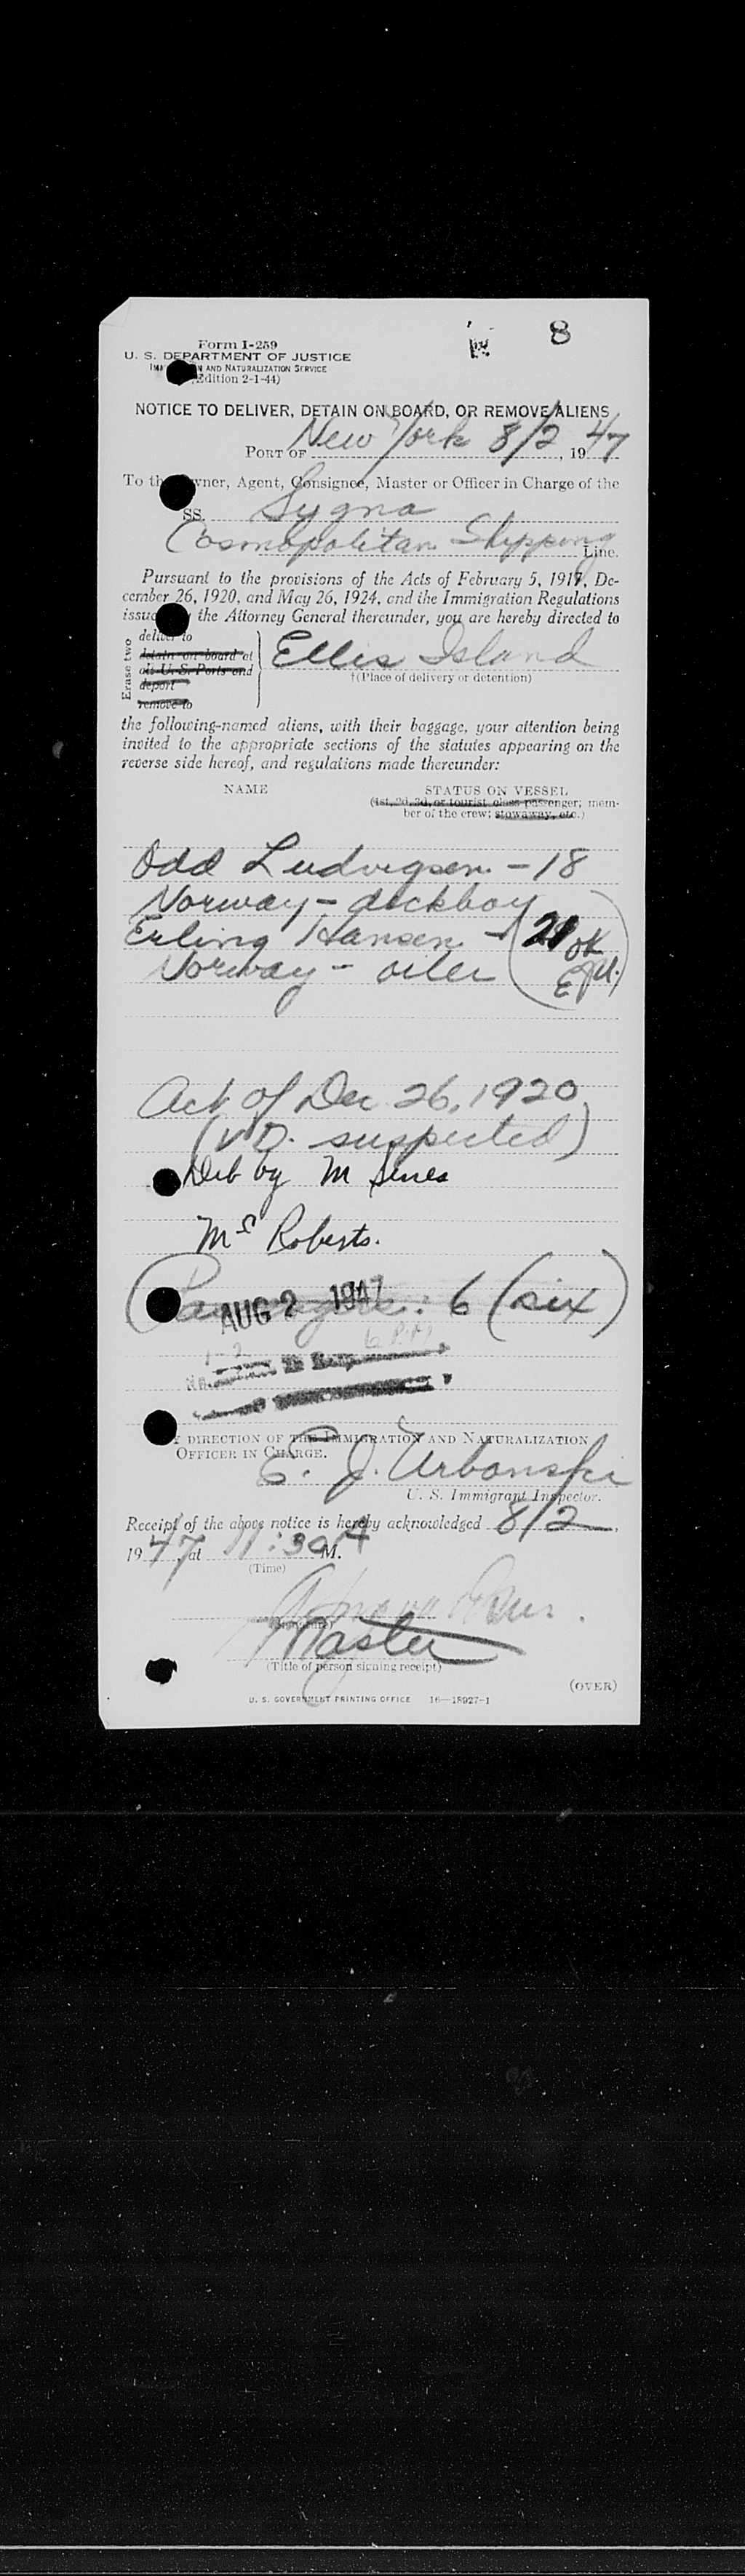 8
Form I-259
U. S. DEPARTMENT OF JUSTICE
AND NATURALIZATION SERVICE
Edition 2-1-44)
NOTICE TO DELIVER, DETAIN ON BOARD, OR REMOVE ALIENS
PORT OF New York 8/2, 1947
To the Owner, Agent, Consignee, Master or Officer in Charge of the
SS. Sygna
Cosmopolitan Shipping Line.
Pursuant to the provisions of the Acts of February 5, 1917, De-
cember 26, 1920, and May 26, 1924, and the Immigration Regulations
issued the Attorney General thereunder, you are hereby directed to
Erase two
deliver to
detain on board at
all U. S. Ports and
deport
remove to
Ellis Island
†(Place of delivery or detention)
the following-named aliens, with their baggage, your attention being
invited to the appropriate sections of the statutes appearing on the
reverse side hereof, and regulations made thereunder:
NAME STATUS ON VESSEL
(1st, 2d, 3d, or tourist class passenger; mem-
ber of the crew; stowaway, etc.)
Odd Ludvigsen - 18
Norway - deckboy
Erling Hansen - (21 ok
Norway - oiler EJU.)
Act of Dec 26, 1920
(VD. suspected)
Deb by M
Mr Roberts.
AUG 2 1947 : 6 (six)
6 PM
DIRECTION OF THE IMMIGRATION AND NATURALIZATION
OFFICER IN CHARGE.
E. J. Urbanski
U. S. Immigrant Inspector.
Receipt of the above notice is hereby acknowledged 8/2,
1947, at 11:30 A M.
(Time)
(Signature)
Master
(Title of person signing receipt)
(OVER)
U. S. GOVERNMENT PRINTING OFFICE 16—18927-1